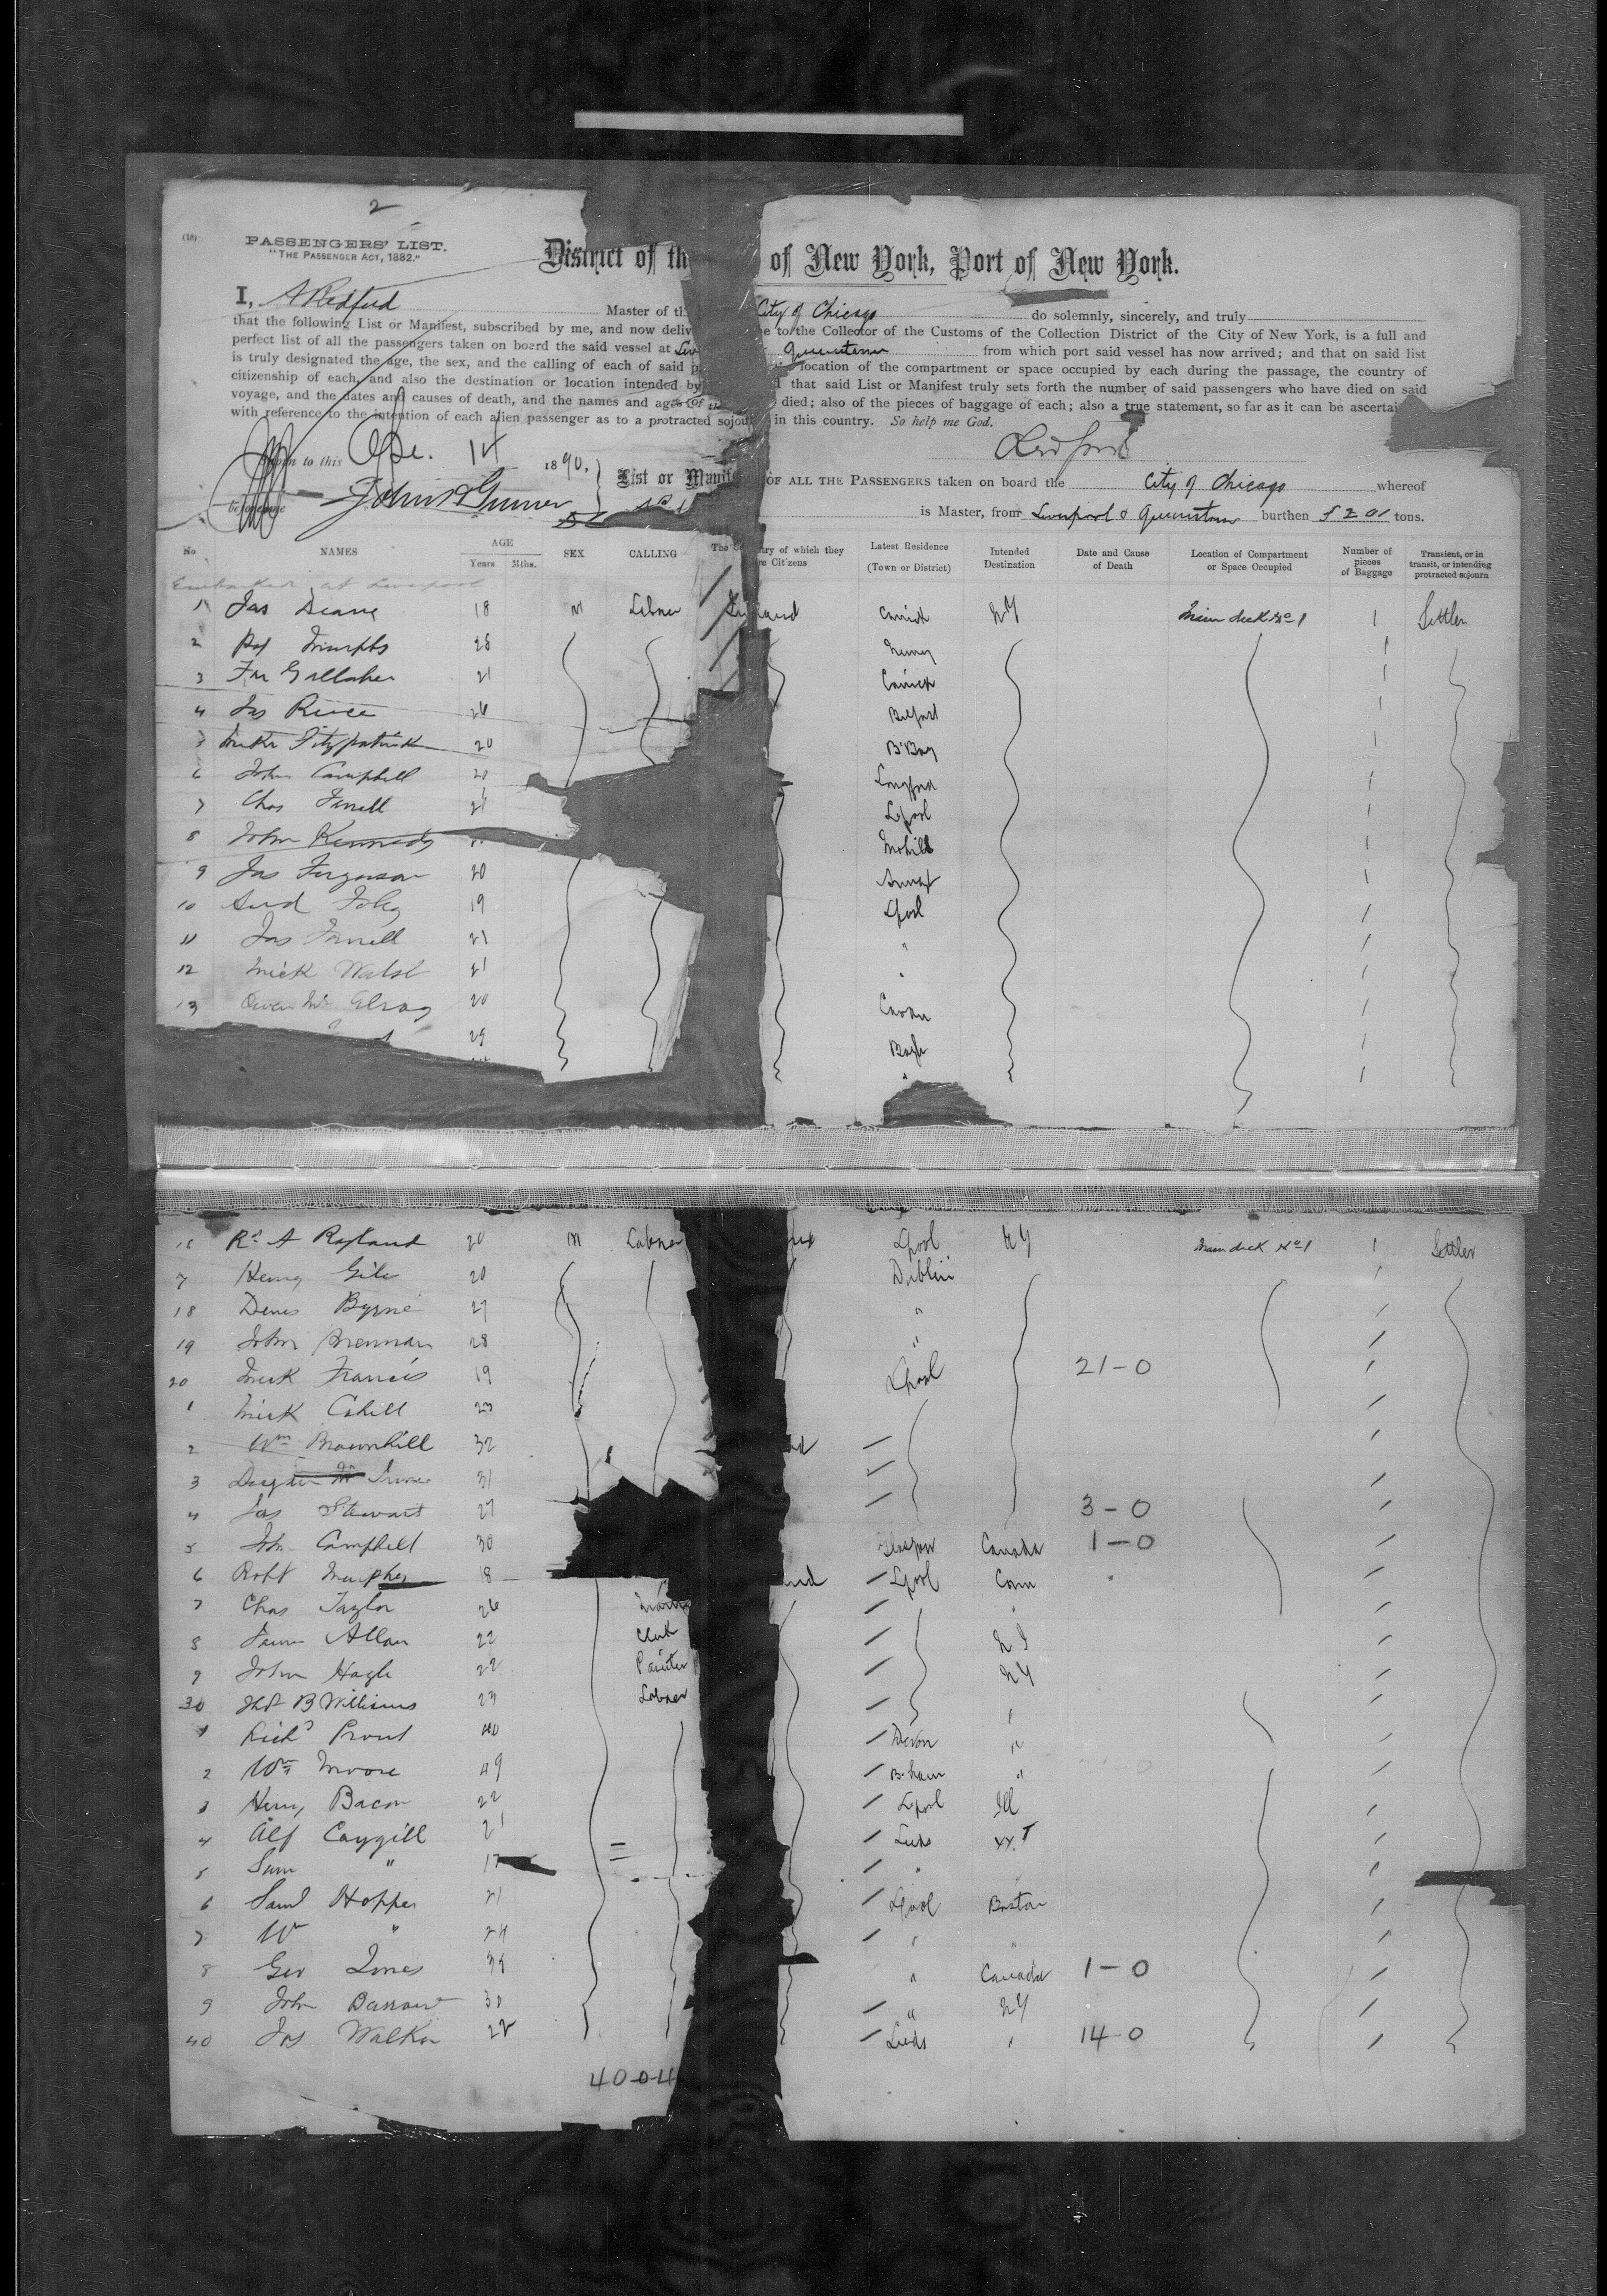 2
(10)
PASSENGERS' LIST.
"THE PASSENGER ACT, 1882."
District of th of New York, Port of New York.
I, A Redford Master of th City of Chicago do solemnly, sincerely, and truly
that the following List or Manifest, subscribed by me, and now deliv e to the Collector of the Customs of the Collection District of the City of New York, is a full and
perfect list of all the passengers taken on board the said vessel at Liv Queenstown from which port said vessel has now arrived; and that on said list
is truly designated the age, the sex, and the calling of each of said p location of the compartment or space occupied by each during the passage, the country of
citizenship of each, and also the destination or location intended by that said List or Manifest truly sets forth the number of said passengers who have died on said
voyage, and the dates and causes of death, and the names and ages of th died; also of the pieces of baggage of each; also a true statement, so far as it can be ascertai
with reference to the intention of each alien passenger as to a protracted sojou in this country. So help me God.
Redford
to this 14 1890.
List or Manife OF ALL THE PASSENGERS taken on board the City of Chicago whereof
is Master, from Liverpool & Queenstown burthen 5201 tons.
No NAMES AGE Years Mths. SEX CALLING The Co try of which they re Citizens Latest Residence (Town or District) Intended Destination Date and Cause of Death Location of Compartment or Space Occupied Number of pieces of Baggage Transient, or in transit, or intending protracted sojourn
Embarked at Liverpool
1 Jas 18 M Labner and Carrick NY Main deck No 1 1 Settler
2 Pat Murphy 25 1
3 Gallaher 21 Carrick 1
4 Jas 26 Belfast 1
5 Fitzpatrick 20 1
6 John Campbell 20 Longford 1
7 Chas Farrell 21 Lpool 1
8 John Kennedy Mohill 1
9 Jas Ferguson 20 1
10 Foley 19 Lpool 1
11 Jas Farrell 21 " 1
12 Mick Walsh 21 " 1
13 Owen Mc 20 Cavan 1
29 Boyle 1
Rd A Ryland 20 M Labner Lpool NY Main deck No 1 1 Settler
7 Henry 20 Dublin 1
18 Denis Byrne 27 " 1
19 John Brennan 28 " 1
20 Mick Francis 19 Lpool 21-0 1
1 Mick Cahill 23 1
2 Wm Brownhill 32 1
3 31 1
4 Jas Stewart 27 3-0 1
5 Jn Campbell 30 Glasgow Canada 1-0 1
6 Robt Murphy 18 Lpool Conn 1
7 Chas Taylor 26 " 1
8 Allan 22 Clerk 1
9 John Hogle 22 Painter NY 1
30 Thos B Williams 23 Labner " 1
1 Richd Prout 40 Devon " 1
2 Wm Moore 49 B.ham " 1
3 Henry Bacon 22 Lpool Ill 1
4 Alf Caygill 21 Leeds 1
5 Sam " 17 " 1
6 Saml Hopper 21 Lpool Boston 1
7 Wm " 24 " " 1
8 Geo Jones " Canada 1-0 1
9 John Barrow 30 " NY 1
40 Jas Walker 22 Leeds " 14-0 1
40-0-4